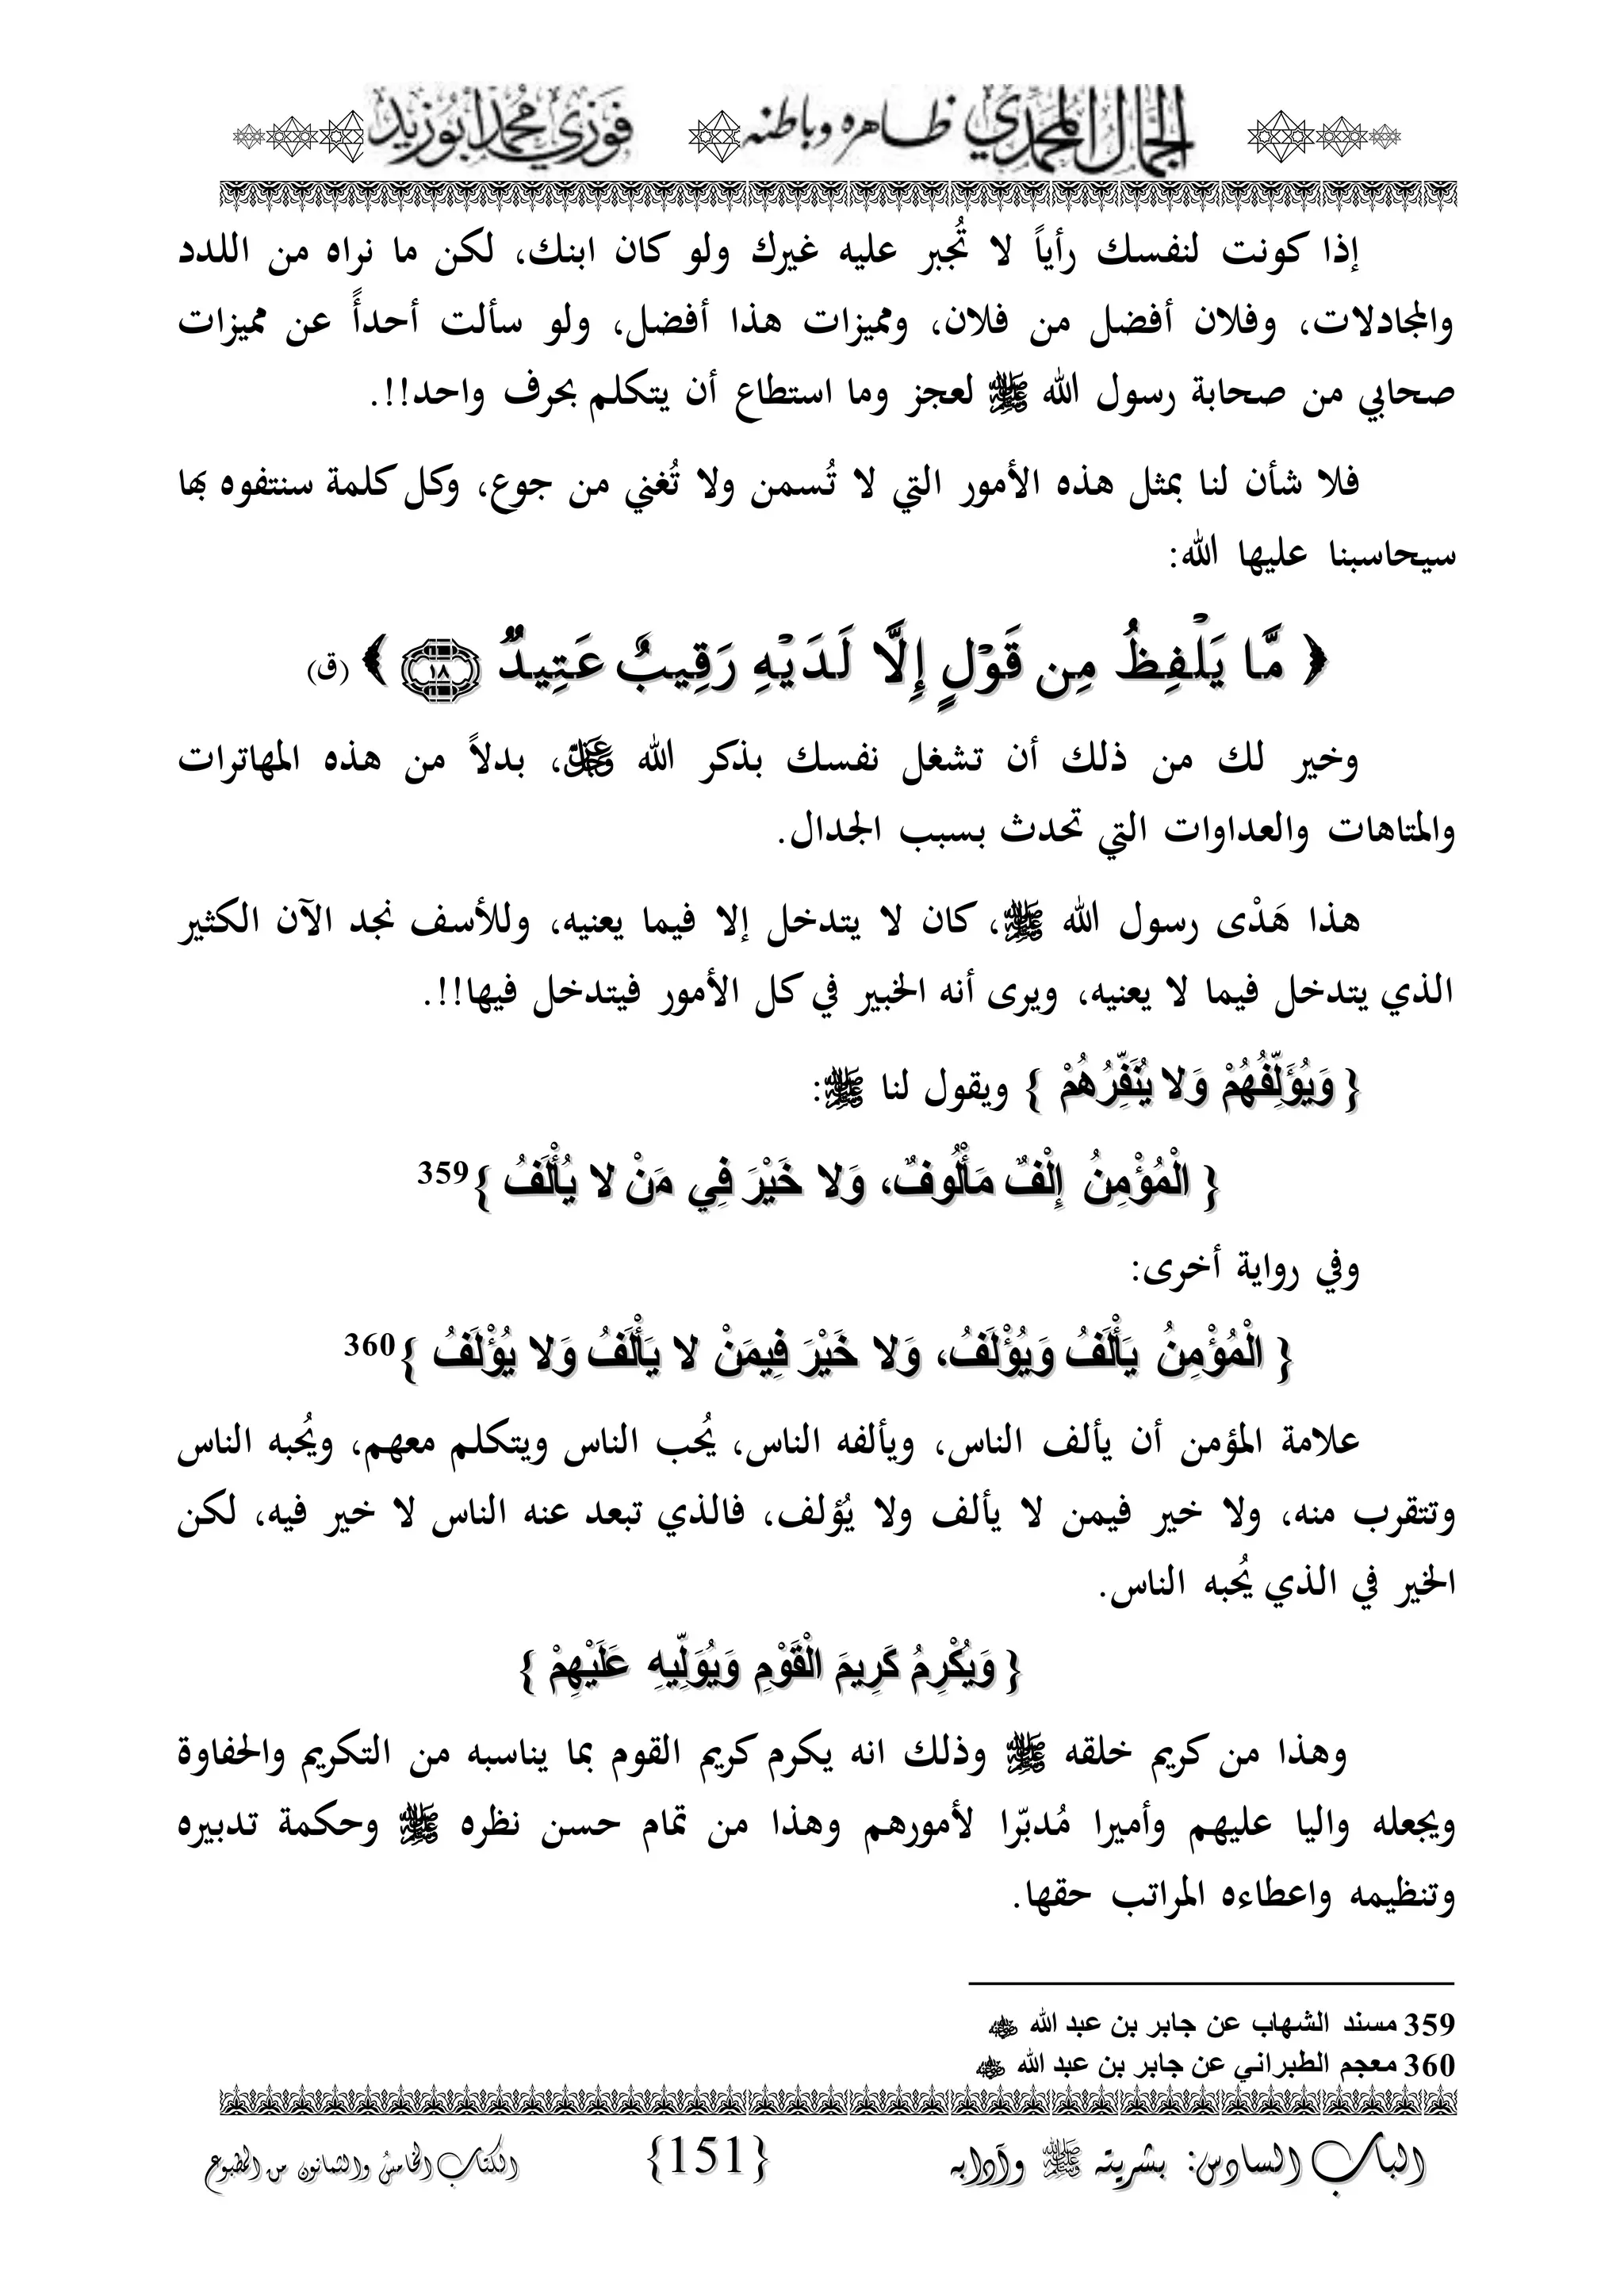 الجمال المحمدي ظاهره وباطنه فوزي محمد أبوزيد
إذا كونت لنفسك رأياً لا تُجبر عليه غيرك ولو كان ابنك، لكن ما نراه من اللدد
والمجادلات، وفلان أفضل من فلان، ومميزات هذا أفضل، ولو سألت أحداً عن مميزات
صحابي من صحابة رسول الله ﷺ لعجز وما استطاع أن يتكلم بحرف واحد!!.
فلا شأن لنا بمثل هذه الأمور التي لا تُسمن ولا تُغني من جوع، وكل كلمة سنتفوه بها
سيحاسبنا عليها الله:
﴿ مَّا يَلْفِظُ مِن قَوْلٍ إِلَّا لَدَيْهِ رَقِيبٌ عَتِيدٌ ١٨ ﴾ (ق)
وخير لك من ذلك أن تشغل نفسك بذكر الله عز وجل، بدلاً من هذه المهاترات
والمتاهات والعداوات التي تحدث بسبب الجدال.
هذا هَدْى رسول الله ﷺ، كان لا يتدخل إلا فيما يعنيه، وللأسف نجد الآن الكثير
الذي يتدخل فيما لا يعنيه، ويرى أنه الخبير في كل الأمور فيتدخل فيها!!.
{ وَيُؤَلِّفُهُمْ وَلا يُنَفِّرُهُمْ } ويقول لنا ﷺ:
{ الْمُؤْمِنُ إِلْفٌ مَأْلُوفٌ، وَلا خَيْرَ فِي مَنْ لا يُأْلَفُ }359
وفي رواية أخرى:
{ الْمُؤْمِنُ يَأْلَفُ وَيُؤْلَفُ، وَلا خَيْرَ فِيمَنْ لا يَأْلَفُ وَلا يُؤْلَفُ }360
علامة المؤمن أن يألف الناس، ويألفه الناس، يُحب الناس ويتكلم معهم، ويُحبه الناس
وتتقرب منه، ولا خير فيمن لا يألف ولا يُؤلف، فالذي تبعد عنه الناس لا خير فيه، لكن
الخير في الذي يُحبه الناس.
{ وَيُكْرِمُ كَرِيمَ الْقَوْمِ وَيُوَلِّيهِ عَلَيْهِمْ }
وهذا من كريم خلقه ﷺ وذلك انه يكرم كريم القوم بما يناسبه من التكريم والحفاوة
ويجعله واليا عليهم وأميرا مُدبّرا لأمورهم وهذا من تمام حسن نظره ﷺ وحكمة تدبيره
وتنظيمه واعطاءه المراتب حقها.
359 مسند الشهاب عن جابر بن عبد الله
360 معجم الطبراني عن جابر بن عبد الله
الباب السادس: بشريته ﷺ وآدابه {151} الكتاب الخامس والثمانون من المطبوع